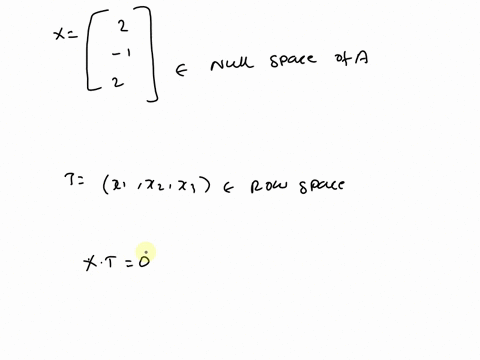 x = [ 2
-1
2 ] ∈ Null space of A
T = (x1, x2, x3) ∈ Row space
X · T = 0